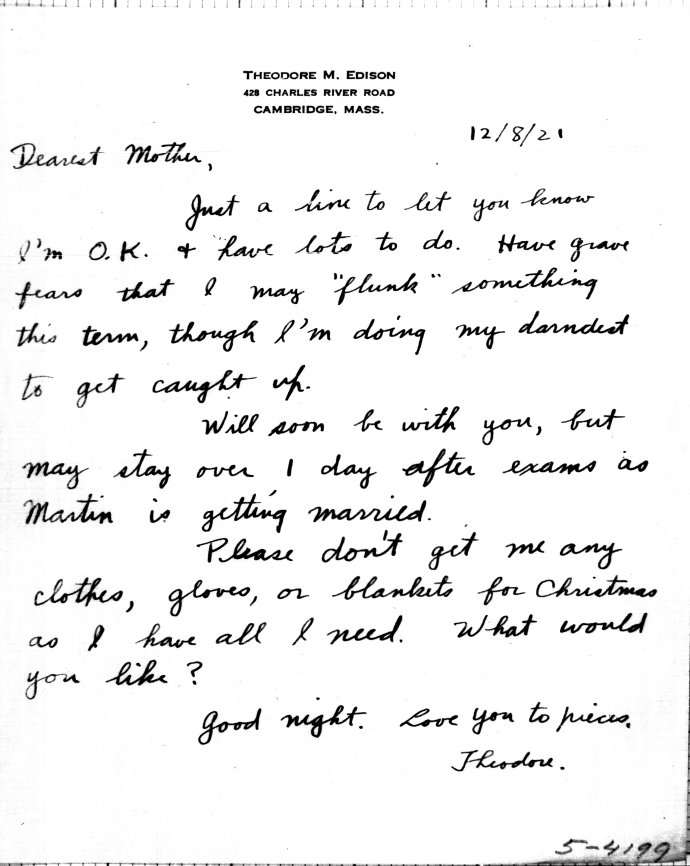 THEODORE M. EDISON
428 CHARLES RIVER ROAD
CAMBRIDGE, MASS.
12/8/21
Dearest Mother,
Just a line to let you know
I'm O.K. + have lots to do. Have grave
fears that I may "flunk" something
this term, though I'm doing my darndest
to get caught up.
Will soon be with you, but
may stay over 1 day after exams as
Martin is getting married.
Please don't get me any
clothes, gloves, or blankets for Christmas
as I have all I need. What would
you like?
Good night. Love you to pieces.
Theodore.
5-4199